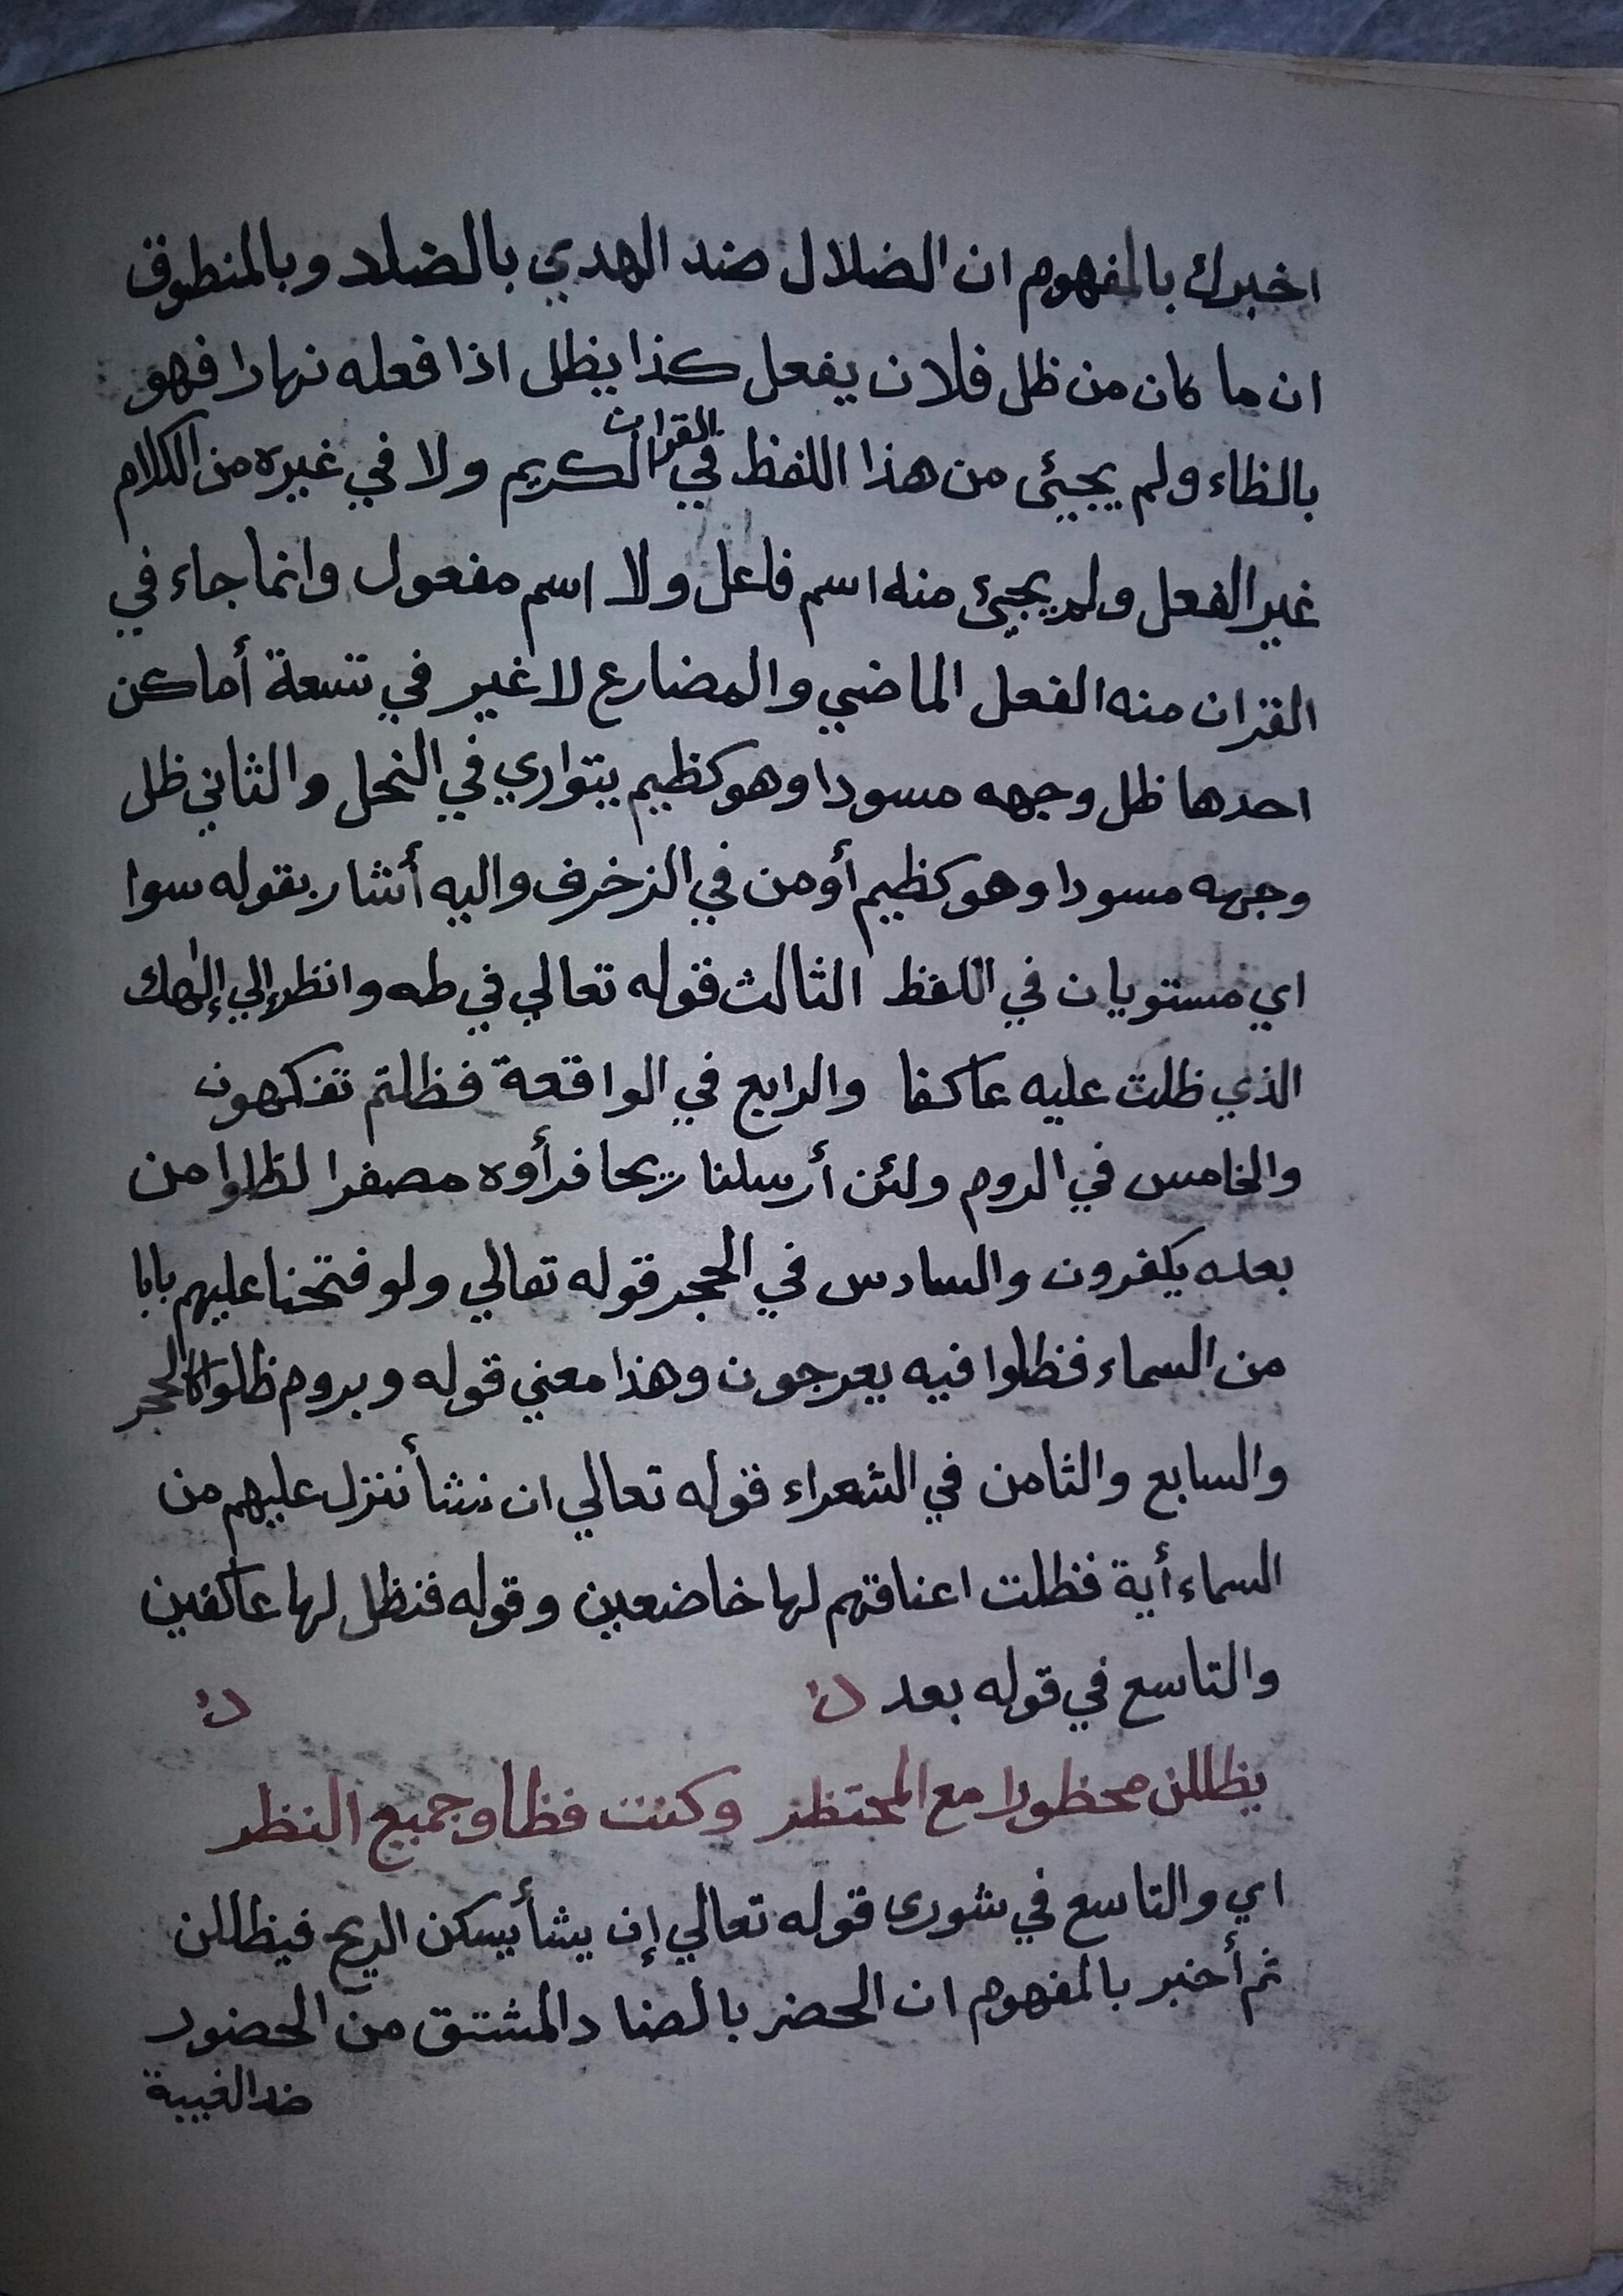 اخبرك بالمفهوم ان الضلال ضد الهدي بالضاد وبالمنطوق
ان ما كان من ظل فلان يفعل كذا يظل اذا فعله نهارا فهو
بالظاء ولم يجيئ من هذا اللفظ في القران الكريم ولا في غيره من الكلام
غير الفعل ولم يجيئ منه اسم فاعل ولا اسم مفعول وانما جاء في
القران منه الفعل الماضي والمضارع لا غير في تسعة أماكن
احدها ظل وجهه مسودا وهو كظيم يتواري في النحل والثاني ظل
وجهه مسودا وهو كظيم أومن في الزخرف واليه أشار بقوله سوا
اي مستويان في اللفظ الثالث قوله تعالي في طه وانظر إلي إلهك
الذي ظلت عليه عاكفا والرابع في الواقعة فظلتم تفكهون
والخامس في الروم ولئن أرسلنا ريحا فرأوه مصفرا لظلوا من
بعده يكفرون والسادس في الحجر قوله تعالي ولو فتحنا عليهم بابا
من السماء فظلوا فيه يعرجون وهذا معني قوله وبروم ظلوا كالحجر
والسابع والثامن في الشعراء قوله تعالي ان نشأ ننزل عليهم من
السماء أية فظلت اعناقهم لها خاضعين وقوله فنظل لها عاكفين
والتاسع في قوله بعد
يظللن محظورا مع المحتظر وكنت فظا وجميع النظر
اي والتاسع في شورى قوله تعالي إن يشأ يسكن الريح فيظللن
ثم أخبر بالمفهوم ان الحضر بالضاد المشتق من الحضور
ضد الغيبة